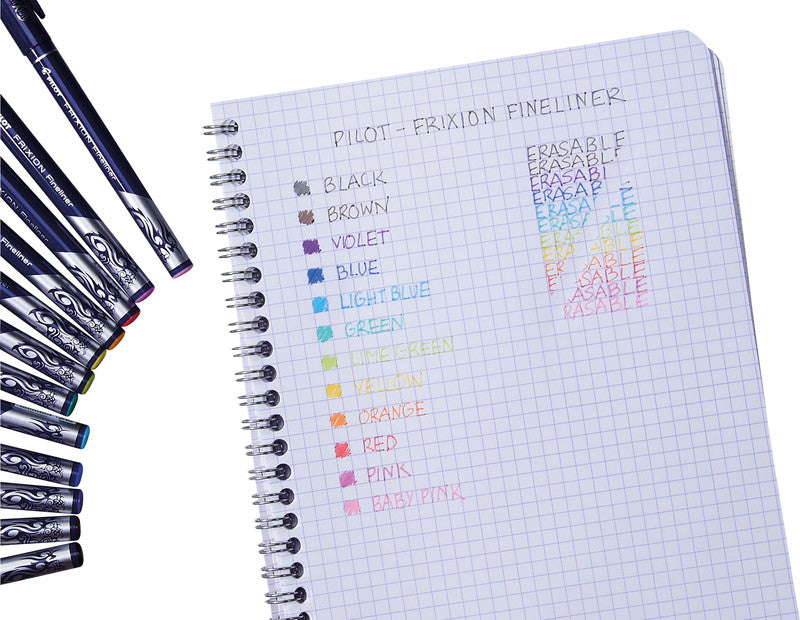 PILOT FRIXION Fineliner
PILOT FRIXION Fineliner
FRIXION Fineliner
Fineliner
PILOT - FRIXION FINELINER
BLACK
BROWN
VIOLET
BLUE
LIGHT BLUE
GREEN
LIME GREEN
YELLOW
ORANGE
RED
PINK
BABY PINK
ERASABLE
ERASABLE
ERASABL
ERASAB
ERASA LE
ERAS BLE
ERA ABLE
ER ABLE
ER SABLE
E ASABLE
RASABLE